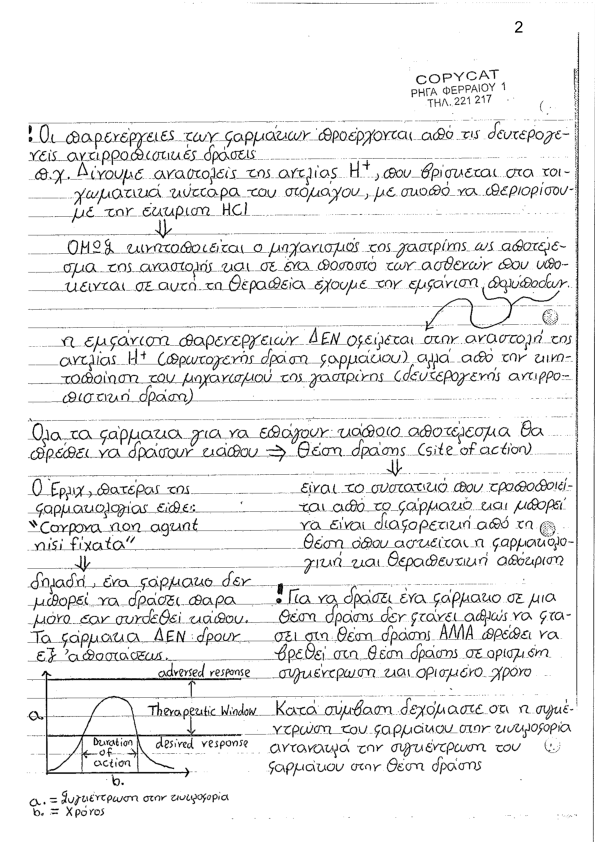 2
COPYCAT
ΡΗΓΑ ΦΕΡΡΑΙΟΥ 1
ΤΗΛ. 221 217
! Οι παρενέργειες των φαρμάκων προέρχονται από τις δευτερογε-
νείς αντιρροπιστικές δράσεις
π.χ. Δίνουμε αναστολείς της αντλίας H⁺, που βρίσκεται στα τοι-
χωματικά κύτταρα του στομάχου, με σκοπό να περιορίσου-
με την έκκριση HCl
⇓
ΟΜΩΣ κινητοποιείται ο μηχανισμός της γαστρίνης ως αποτέλε-
σμα της αναστολής και σε ένα ποσοστό των ασθενών που υπό-
κεινται σε αυτή τη θεραπεία έχουμε την εμφάνιση πολύποδων.
η εμφάνιση παρενεργειών ΔΕΝ οφείλεται στην αναστολή της
αντλίας H⁺ (πρωτογενής δράση φαρμάκου) αλλά από την κινη-
τοποίηση του μηχανισμού της γαστρίνης (δευτερογενής αντιρρο-
πιστική δράση)
Όλα τα φάρμακα για να επάγουν κάποιο αποτέλεσμα θα
πρέπει να δράσουν κάπου ⇒ Θέση δράσης (site of action)
⇓
είναι το συστατικό που τροποποιεί-
ται από το φάρμακο και μπορεί
να είναι διαφορετική από τη
θέση όπου ασκείται η φαρμακολο-
γική και θεραπευτική απόκριση
Ο Έρλιχ, πατέρας της
φαρμακολογίας είπε:
"Corpora non agunt
nisi fixata"
⇓
δηλαδή, ένα φάρμακο δεν
μπορεί να δράσει παρα
μόνο εαν συνδεθεί κάπου.
Τα φάρμακα ΔΕΝ δρουν
εξ' αποστάσεως.
! Για να δράσει ένα φάρμακο σε μια
θέση δράσης δεν φτάνει απλώς να φτα-
σει στη θέση δράσης ΑΛΛΑ πρέπει να
βρεθεί στη θέση δράσης σε ορισμένη
συγκέντρωση και ορισμένο χρόνο
Κατά σύμβαση δεχόμαστε ότι η συγκέ-
ντρωση του φαρμάκου στην κυκλοφορία
αντανακλά την συγκέντρωση του
φαρμάκου στην θέση δράσης
adversed response
a.
Therapeutic Window
desired response
Duration
of
action
b.
a. = Συγκέντρωση στην κυκλοφορία
b. = Χρόνος